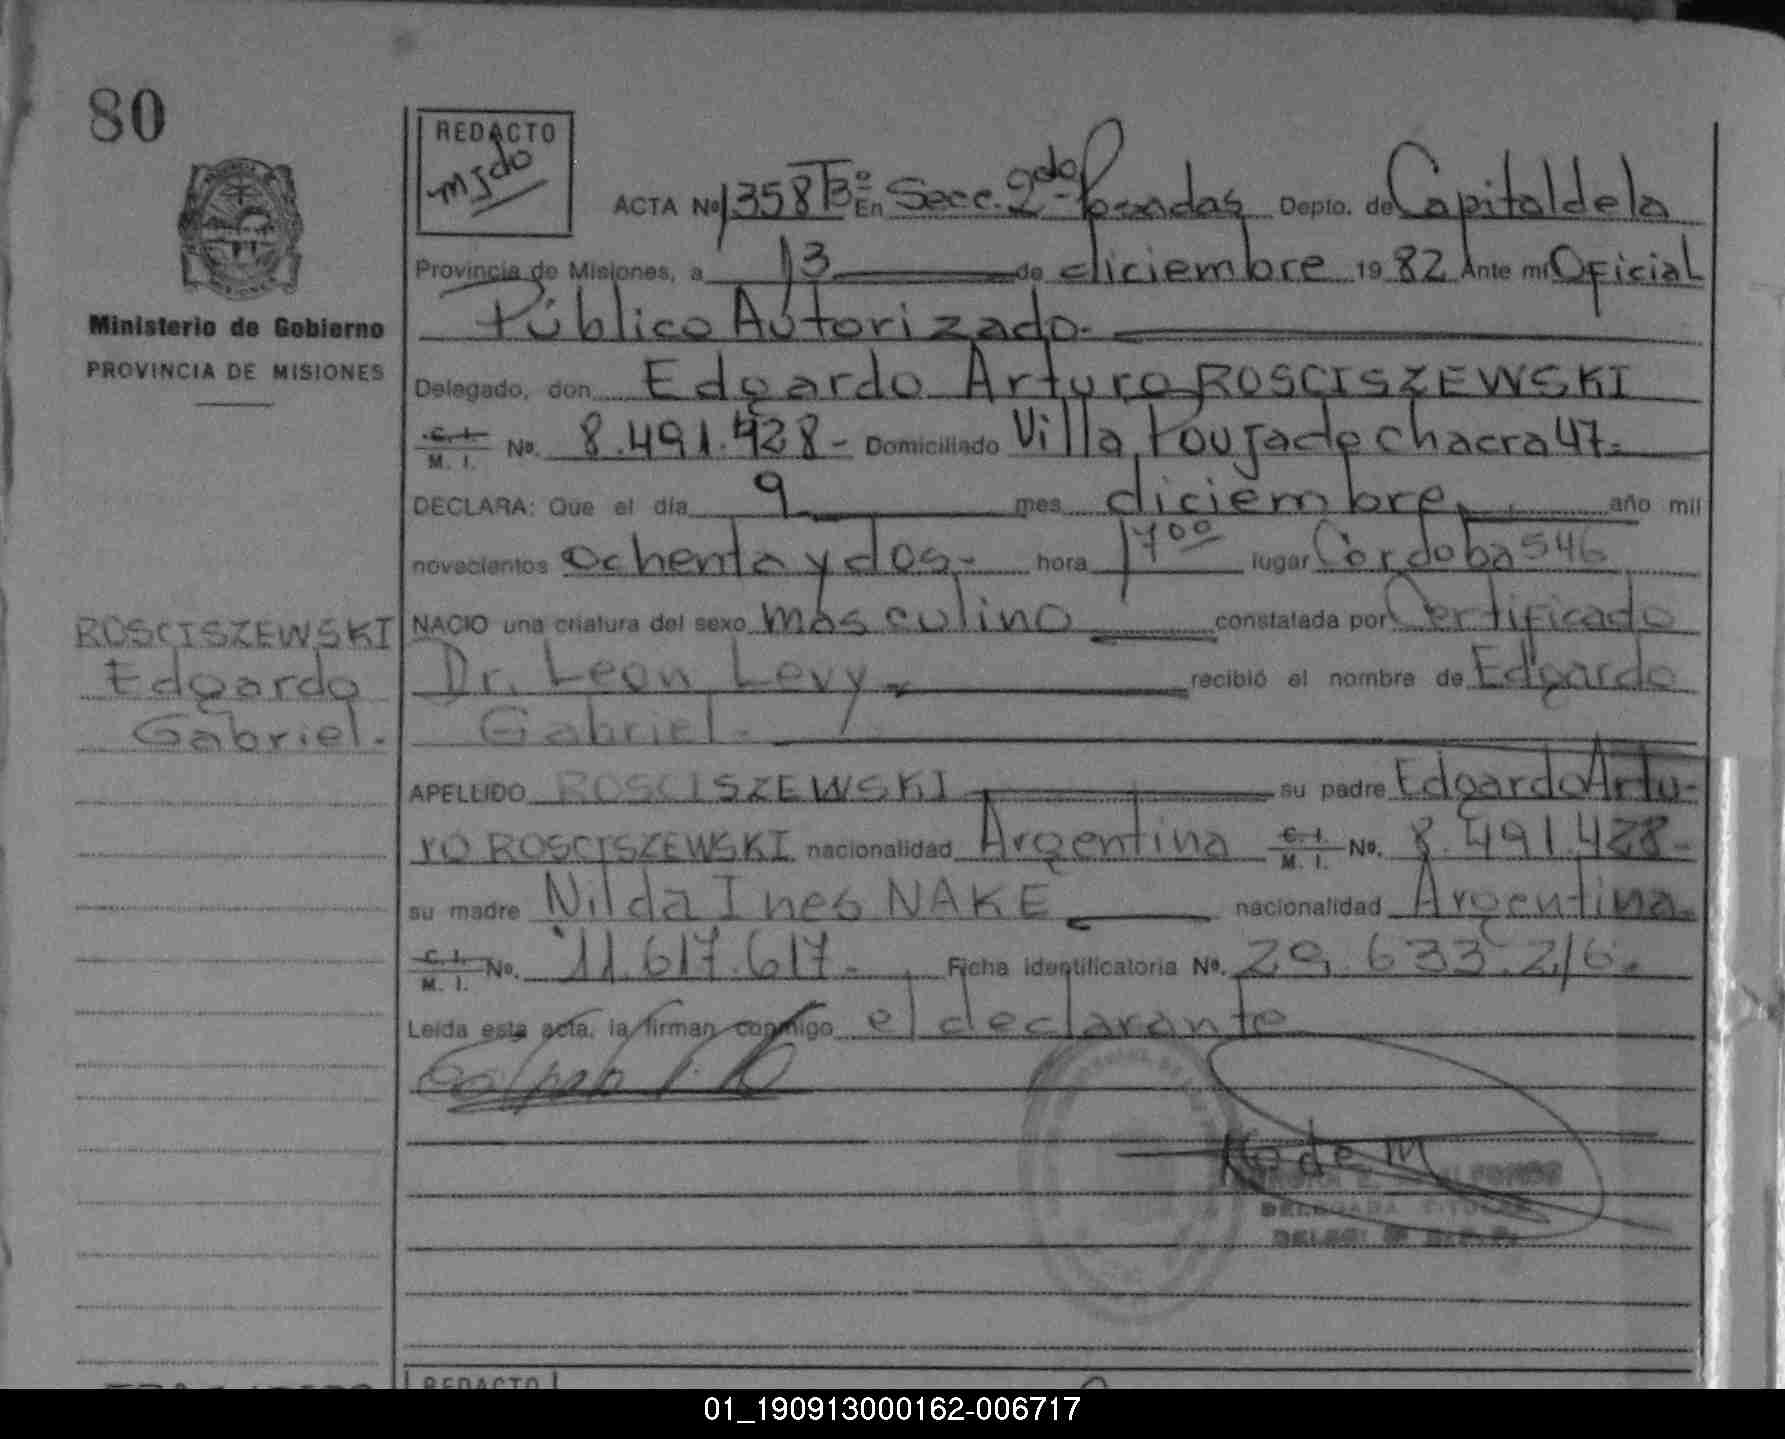 80
REDACTO
ACTA No 1358 Tº 3º En Secc. 2da Posadas Depto. de Capital de la
Provincia de Misiones, a 13 de diciembre 1982 Ante mi Oficial
Ministerio de Gobierno
Público Autorizado.-
PROVINCIA DE MISIONES
Delegado, don Edgardo Arturo ROSCISZEWSKI
C. I.
M. I. No. 8.491.428- Domiciliado Villa Poujade chacra 47.-
DECLARA: Que el día 9 mes diciembre, año mil
novecientos ochenta y dos.- hora 17ºº lugar Córdoba 546
ROSCISZEWSKI
Edgardo
Gabriel.-
NACIO una criatura del sexo masculino constatada por Certificado
Dr. Leon Levy recibió el nombre de Edgardo
Gabriel.-
APELLIDO ROSCISZEWSKI su padre Edgardo Artu-
ro ROSCISZEWSKI nacionalidad Argentina C. I. M. I. No. 8.491.428-
su madre Nilda Ines NAKE nacionalidad Argentina.
C. I.
M. I. No. 11.617.617.- Ficha identificatoria No. 29.633.216.-
Leída esta acta, la firman conmigo el declarante
DELEGADA TITULAR
REDACTO
01_190913000162-006717